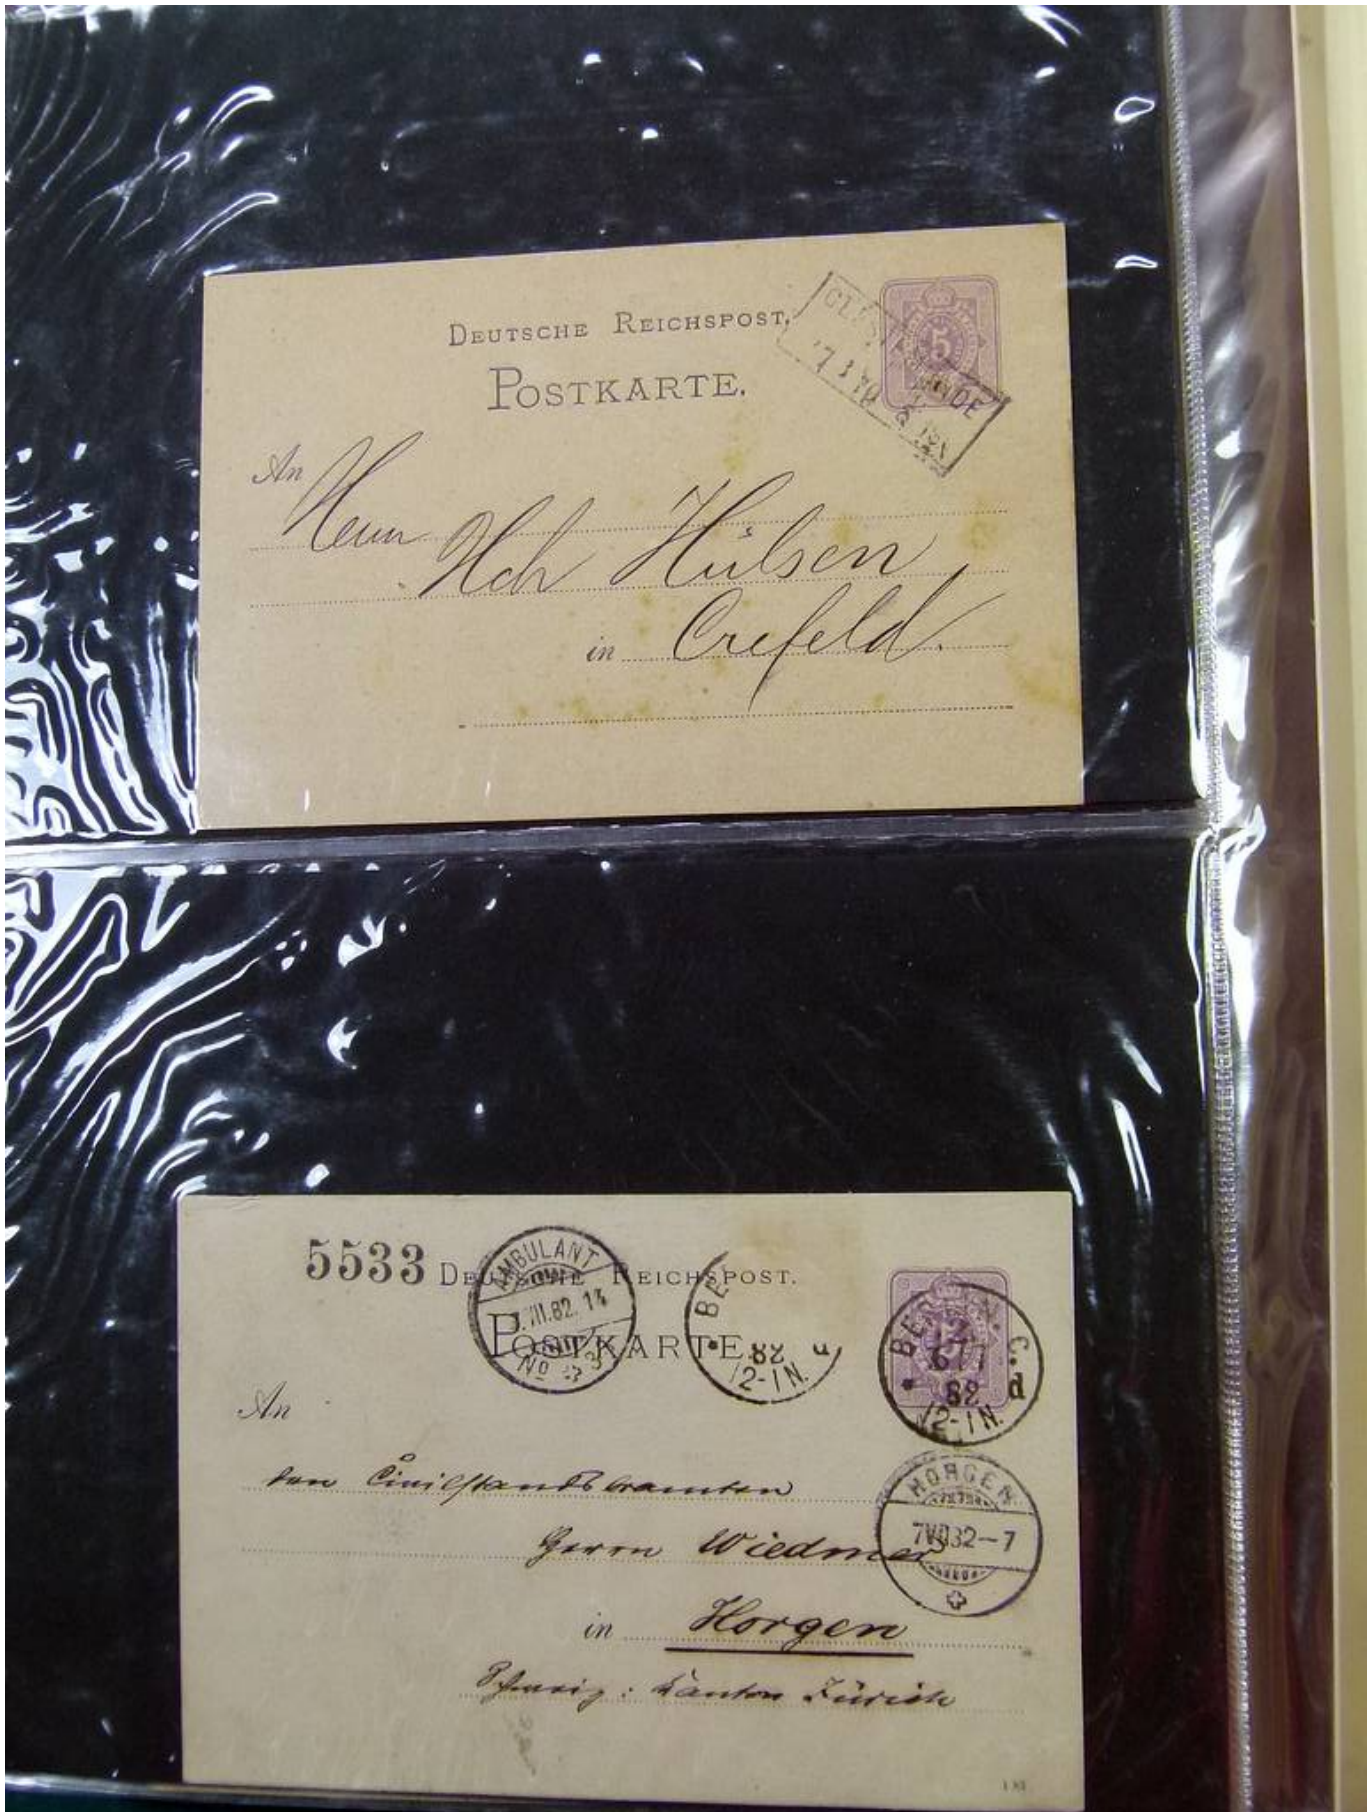 DEUTSCHE REICHSPOST.
POSTKARTE.
5
An
Herrn
Hch Hülsen
in Crefeld.
5533 DEUTSCHE REICHSPOST.
POSTKARTE.
AMBULANT
VII.82. 14
No 3
BE
82
12-1N.
BERLIN. C.
82
d
12-1N.
An
den Civilstandsbeamten
HORGEN
7 VII 82-7
Herrn Wiedmer
in Horgen
Schweiz: Kanton Zürich